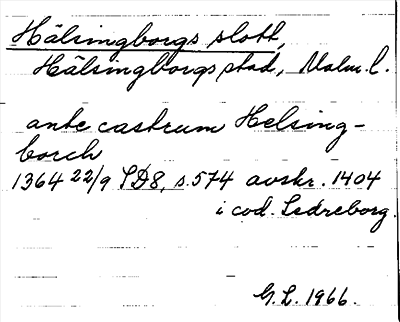 Hälsingborgs slott,
Hälsingborgs stad, Malm. l.
ante castrum Helsing-
borch
1364 22/9 SD8, s. 574 avskr. 1404
i cod. Ledreborg.
G. L. 1966.